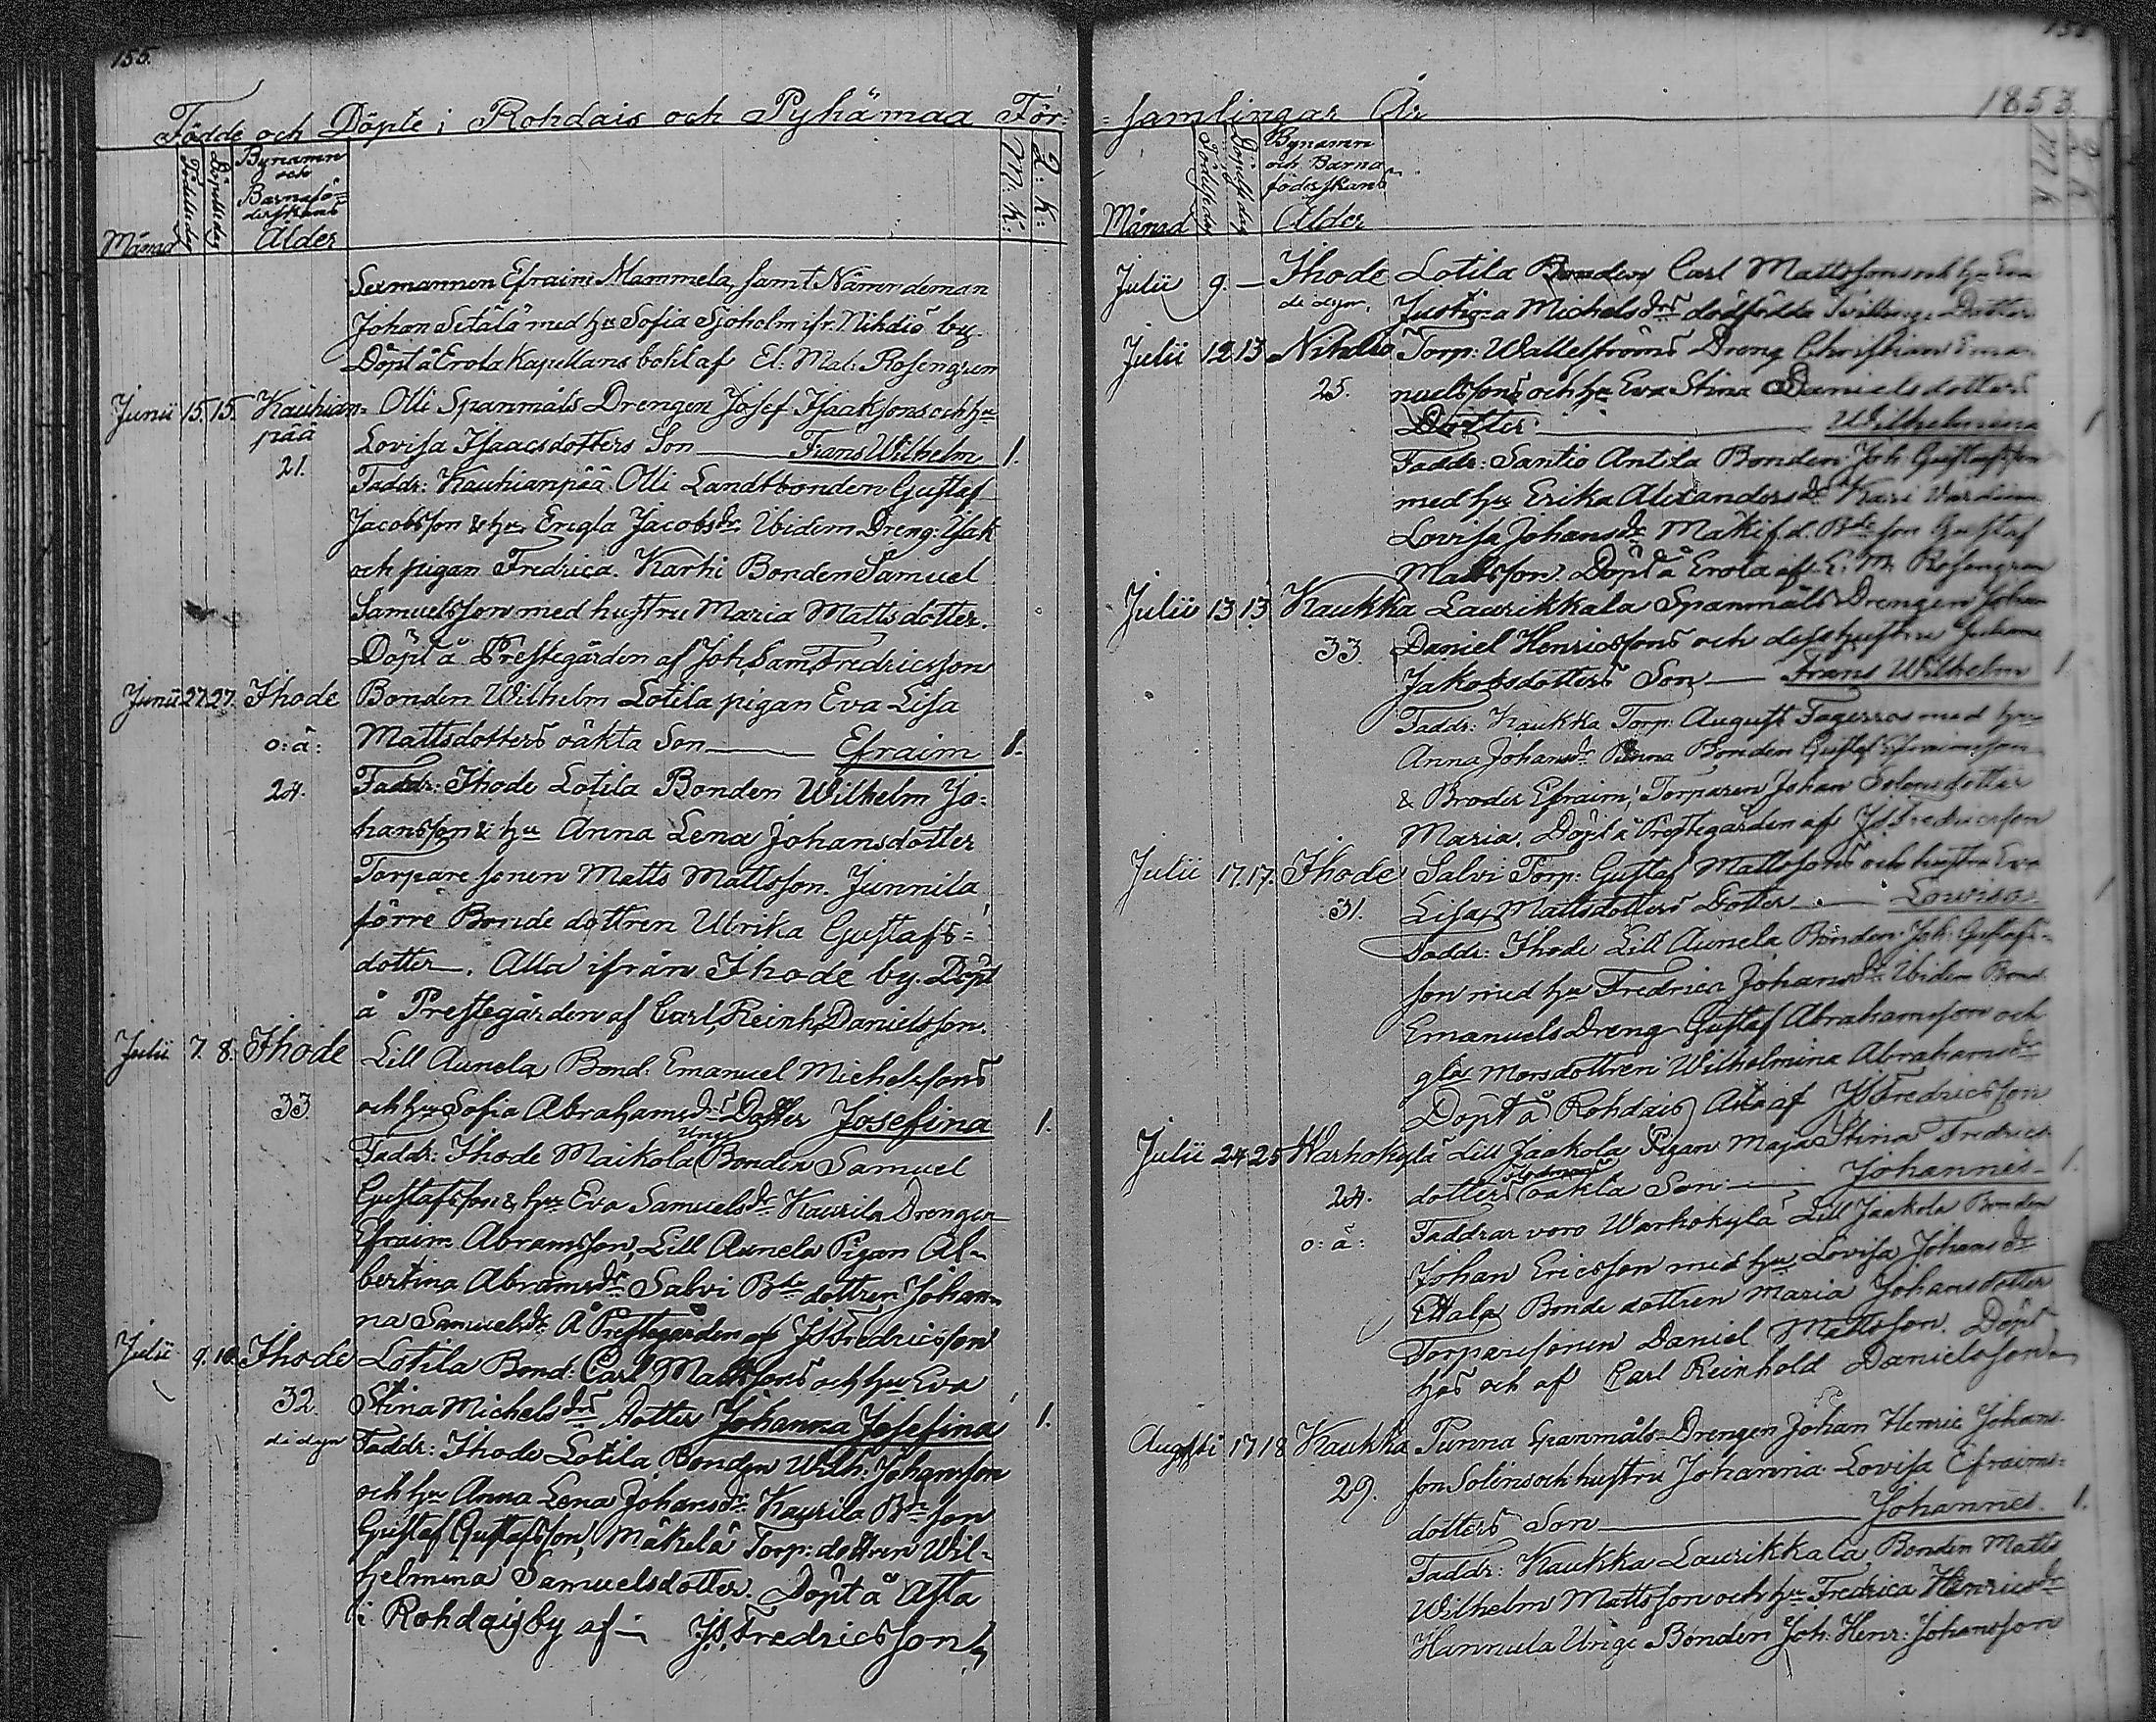 155.
Födde och Döpte i Rohdais och Pyhämaa För=
Månad
Födelsedag
Döpelsedag
Bynamn
och
Barnafö=
derskans
Ålder
M: k:
Q: k:
Sexmannen Efraim Mammela, samt Nämndeman
Johan Setälä med hu Sofia Sjöholm ifr. Nihdiö by.
Döpt å Erola Kapellans bohl af El: Mat: Rosengren
Junii 15. 15. Kauhian= Olli Spanmåls Drengen Josef Isaaksons och hu
pää Lovisa Isaacsdotters Son Frans Wilhelm 1.
21. Faddr: Kauhianpää Olli Landtbonden Gustaf
Jacobsson & hu Erigla Jacobsdr. Ibidem Dreng: Isak
och pigan Fredrica. Karhi Bonden Samuel
Samuelsson med hustru Maria Mattsdotter.
Döpt å Prestegården af Joh. Sam. Fredricsson
Junii 27. 27. Ihode Bonden Wilhelm Lotila pigan Eva Lisa
o: ä: Mattsdotters oäkta Son Efraim 1.
24. Faddr: Ihode Lotila Bonden Wilhelm Jo=
hansson & hu Anna Lena Johansdotter
Torpare sonen Matts Mattsson. Junnila
förre Bonde dottren Ulrika Gustafs=
dotter. Alla ifrån Ihode by. Döpt
å Prestegården af Carl Reinh. Danielsson.
Julii 7. 8. Ihode Lill Aunela Bond: Emanuel Michelssons
33 och hu Sofia Abrahamsdrs Dotter Josefina 1.
Faddr: Ihode Maikola Unge Bonden Samuel
Gustafsson & hu Eva Samuelsdr Kaurila Drengen
Efraim Abramsson, Lill Aunela Pigan Al=
bertina Abramsdr Salvi Bde dottren Johan=
na Samuelsdr Å Prestegården af JS. Fredricsson
Julii 9. 10. Ihode Lotila Bond: Carl Mattssons och hu Eva
32. Stina Michelsdrs Dotter Johanna Josefina 1.
didym Faddr: Ihode Lotila Bonden Wilh: Johansson
och hu Anna Lena Johansdr Kaurila Bde son
Gustaf Gustafsson, Mäkelä Torp: dottren Wil=
helmina Samuelsdotter. Döpt å Asta
i Rohdais by af JS. Fredricsson
=samlingar År 1853.
Månad
Födelsedag
Döpelsedag
Bynamn
och Barna
föderskans
Ålder
M k
Q k
Julii 9. — Ihode Lotila Bonden Carl Mattssons och hu Eva
didym. Justina Michelsdrs dödfödda Tvillings Dotter
Julii 12 13 Nihdiö Torp: Wallströms Dreng Christian Ema=
25. nuelssons och hu Eva Stina Danielsdotters
Dotter Wilhelmina 1
Faddr: Santio Antila Bonden Joh Gustafsson
med hu Erika Alexandersdr Kari
Lovisa Johansdr Mäki f.d. Bde son Gustaf
Mattsson. Döpt å Erola af E. M. Rosengren
Julii 13 13 Kaukka Laurikkala Spanmåls Drengen Johan
33. Daniel Henricssons och dess hustru Juliana
Jakobsdotters Son Frans Wilhelm 1
Faddr: Kaukka Torp: August Fagerros med hu
Anna Johansdr Punna Bonden Gustaf Efraimsson
& Broder Efraim, Torparen Johan dotter
Maria. Döpt å Prestegården af JS. Fredricsson
Julii 17. 17. Ihode Salvi Torp: Gustaf Mattssons och hustru Eva
31. Lisa Mattsdotters Dotter Lovisa 1
Faddr: Ihode Lill Aunela Bonden Joh: Gustafs=
son med hu Fredrica Johansdr Ibidem Bond:
Emanuels Dreng Gustaf Abrahamsson och
gla Morsdottren Wilhelmina Abrahamsdr
Döpt å Rohdais Asta af JS Fredricsson
Julii 24 25 Warhokylä Lill Jaakola Pigan Maja Stina Fredrics=
24. dotters oäkta Son Johannes 1.
o: ä: Faddrar voro Warhokylä Lill Jaakola Bonden
Johan Ericsson med hu Lovisa Johansdr
Ettala Bonde dottren Maria Johansdotter
Torparesonen Daniel Mattsson. Döpt
hos och af Carl Reinhold Danielsson
Augusti 17 18 Kaukka Punna Spanmåls Drengen Johan Henric Johans=
29. son Solins och hustru Johanna Lovisa Efraims=
dotters Son Johannes. 1.
Faddr: Kaukka Laurikkala Bonden Matts
Wilhelm Mattsson och hu Fredrica Henricsdr
Hannula Unge Bonden Joh: Henr: Johansson